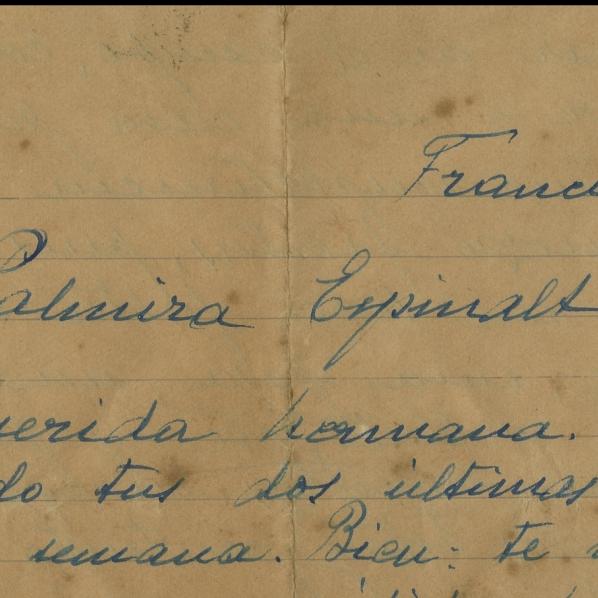 Franc
Palmira Espinalt
erida hermana.
do tus dos últimas
semana. Bien: te